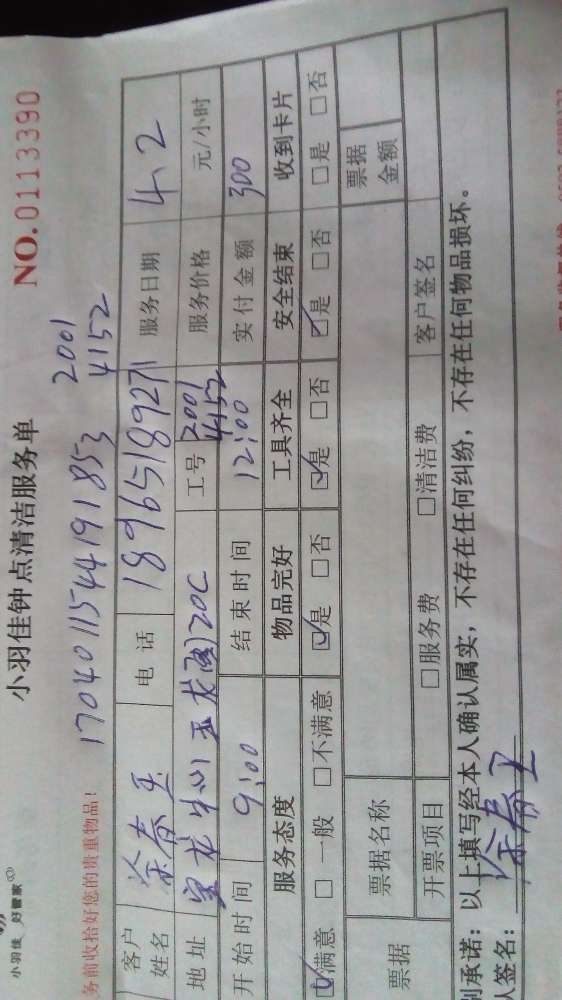 小羽佳 好管家
小羽佳钟点清洁服务单
NO.0113390
务前收拾好您的贵重物品!
1704011544191853
2001
4152
客户姓名 徐春玉 电话 18965189271 服务日期 4.2
地址 宝龙 玉龙阁20C 工号 2001 4152 服务价格 元/小时
开始时间 9:00 结束时间 12:00 实付金额 300
服务态度 物品完好 工具齐全 安全结束 收到卡片
☑满意 □一般 □不满意 ☑是 □否 ☑是 □否 ☑是 □否 □是 □否
票据 票据名称 票据金额
开票项目 □服务费 □清洁费 客户签名
别承诺:以上填写经本人确认属实,不存在任何纠纷,不存在任何物品损坏。
人签名:徐春玉